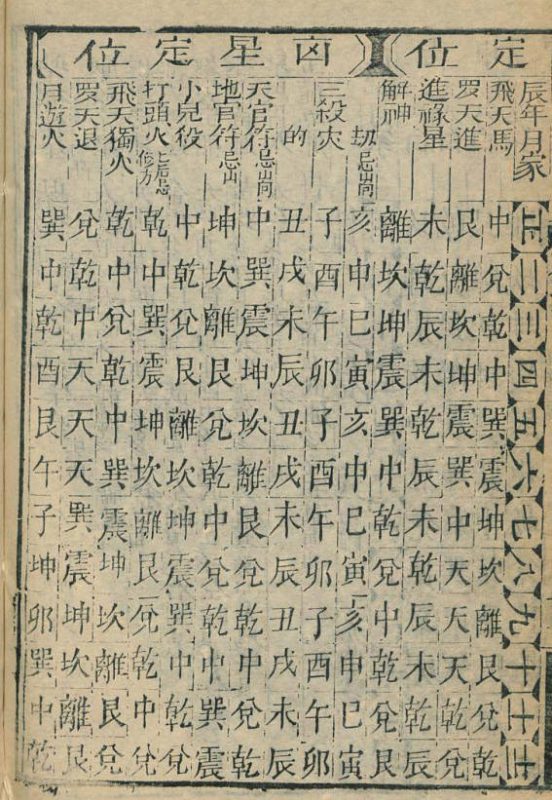 定位
凶星定位
辰年月家 正 二 三 四 五 六 七 八 九 十 十一 十二
飛天馬 中 兌 乾 中 巽 震 坤 坎 離 艮 兌 乾
罗天進 艮 離 坎 坤 震 巽 中 天 天 天 乾 兌
進祿星 未 乾 辰 未 乾 辰 未 乾 辰 未 乾 辰
解神 離 坎 坤 震 巽 中 乾 兌 中 乾 兌 艮
劫忌山向 亥 申 巳 寅 亥 申 巳 寅 亥 申 巳 寅
三殺灾 子 酉 午 卯 子 酉 午 卯 子 酉 午 卯
的 丑 戌 未 辰 丑 戌 未 辰 丑 戌 未 辰
天官符忌山向 中 巽 震 坤 坎 離 艮 兌 乾 中 兌 乾
地官符忌山 坤 坎 離 艮 兌 乾 中 兌 乾 中 巽 震
小兒役 中 乾 兌 艮 離 坎 坤 震 巽 中 乾 兌
打頭火修方 乾 中 巽 震 坤 坎 離 艮 兌 乾 中 兌
飛天獨火 乾 中 兌 乾 中 巽 震 坤 坎 離 艮 兌
罗天退 兌 乾 中 天 天 天 巽 震 坤 坎 離 艮
月遊火 巽 中 乾 酉 艮 午 子 坤 卯 巽 中 乾